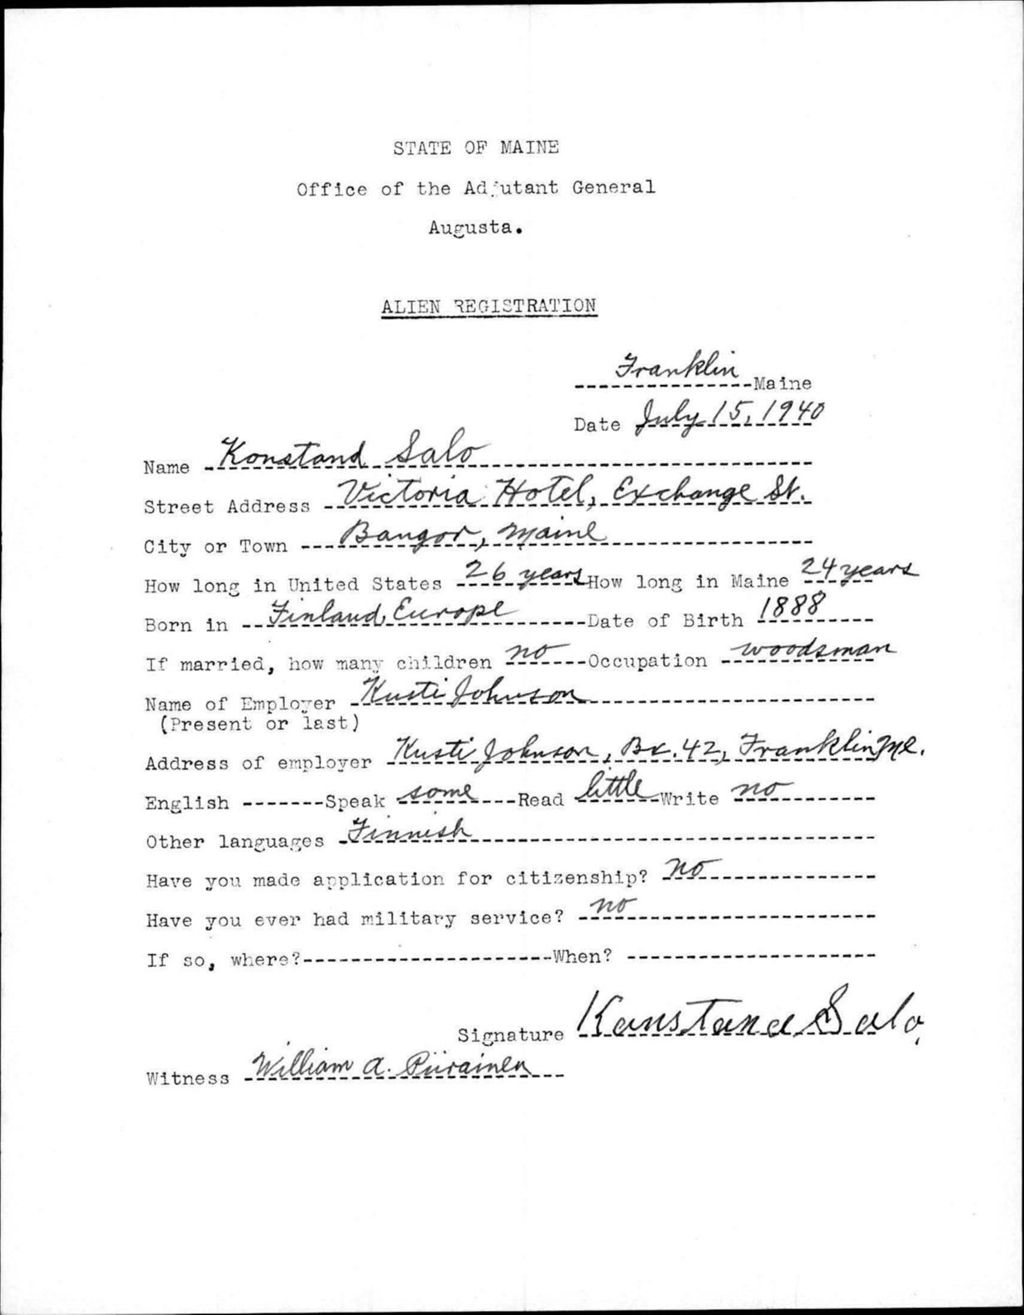 STATE OF MAINE
Office of the Adjutant General
Augusta.
ALIEN REGISTRATION
Franklin Maine
Date July 15, 1940
Name Konstand Salo
Street Address Victoria Hotel, Exchange St.
City or Town Bangor, Maine
How long in United States 26 years How long in Maine 24 years
Born in Finland, Europe Date of Birth 1888
If married, how many children no Occupation woodsman
Name of Employer Kusti Johnson
(Present or last)
Address of employer Kusti Johnson, Bx. 42, Franklin, Me.
English Speak some Read little Write no
Other languages Finnish
Have you made application for citizenship? no
Have you ever had military service? no
If so, where? When?
Signature Konstand Salo
Witness William A. Piirainen